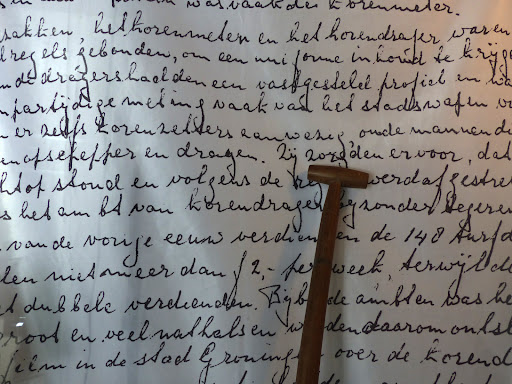 was vaak de korenmeter.
zakken, het korenmeten en het korendrager waren
regels gebonden, om een uniforme inhoud te krijge
de dragers hadden een vastgesteld profiel en wa
npartijdige meting vaak van het stadswapen vo
n er zelfs korenzetters aanwezig, oude mannen di
en opschepper en dragen. Zij zorgden ervoor, dat
htop stond en volgens de werd afgestre
s het ambt van korendrager byzonder begeren
van de vorige eeuw verdienden de 148 turfd
den niet meer dan f 2,- per week, terwijl de
et dubbele verdienden. Bij de ambten was he
groot en veel nathalsen werden daarom ontsl
in de stad Groningen over de korend